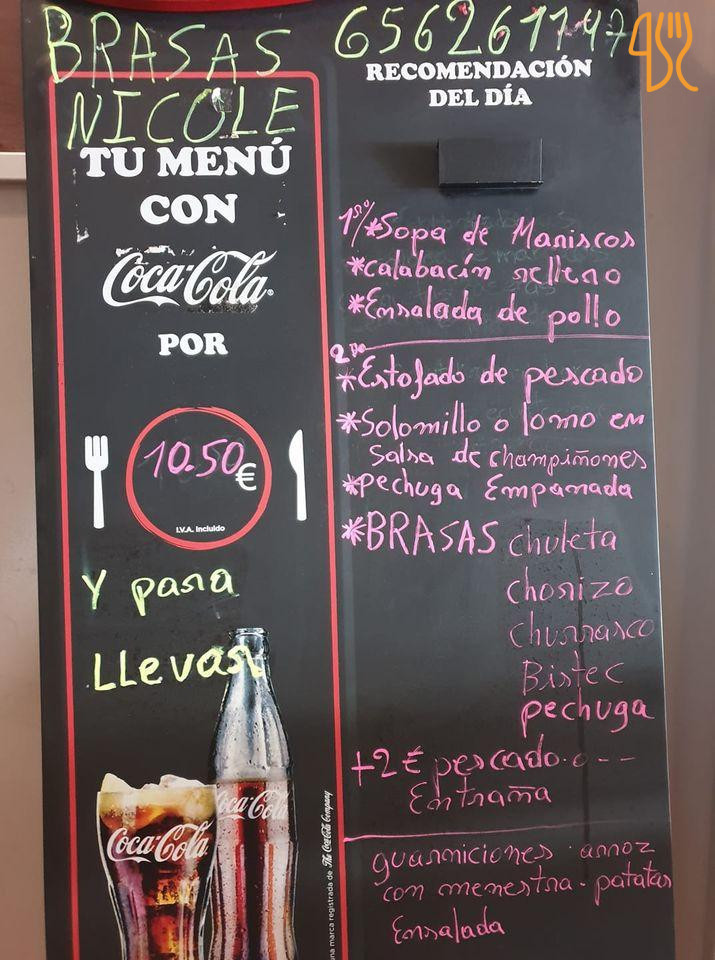 BRASAS
NICOLE
TU MENÚ
CON
Coca-Cola
POR
10.50 €
I.V.A. Incluido
Y para
LLevar
Coca-Cola
Coca-Cola
una marca registrada de The Coca-Cola Company
656261147
RECOMENDACIÓN
DEL DÍA
1º/*Sopa de Mariscos
*calabacín relleno
*Ensalada de pollo
2do
*Estofado de pescado
*Solomillo o lomo en
Salsa de champiñones
*pechuga Empanada
*BRASAS chuleta
chorizo
churrasco
Bistec
pechuga
+2 € pescado o --
Entraña
guarniciones · arroz
con menestra · patatas
Ensalada